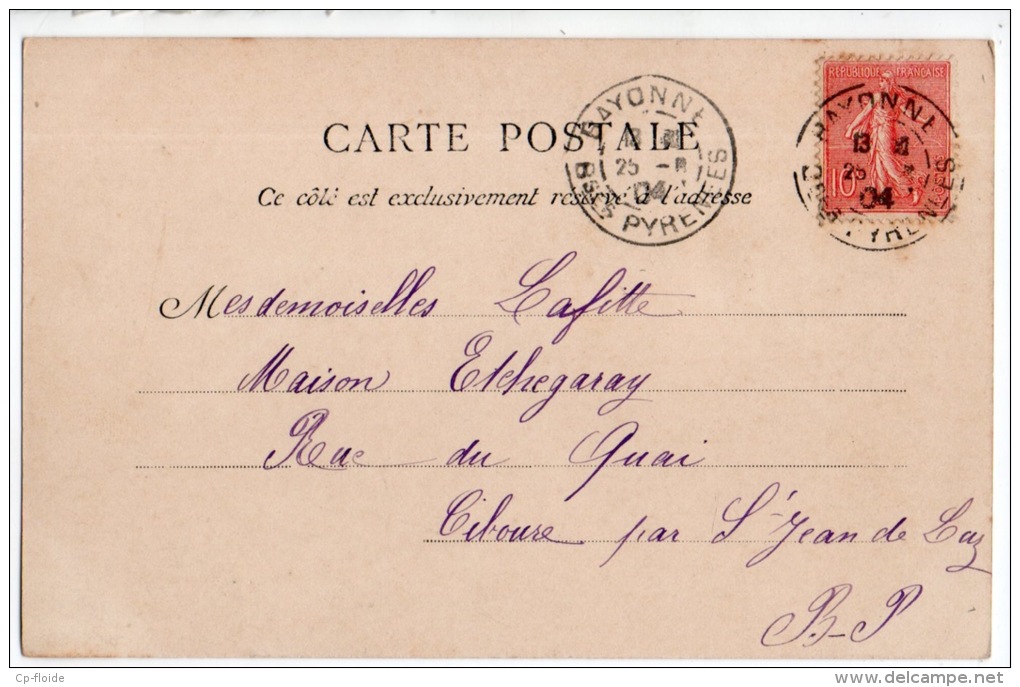 RÉPUBLIQUE FRANÇAISE
10
BAYONNE
13
25
04
BSSES PYRENEES
BAYONNE
13
25
04
PYRENEES
CARTE POSTALE
Ce côté est exclusivement réservé à l'adresse
Mesdemoiselles Lafitte
Maison Etchegaray
Rue du Quai
Ciboure par St Jean de Luz
B-P
Cp-floide
www.delcampe.net